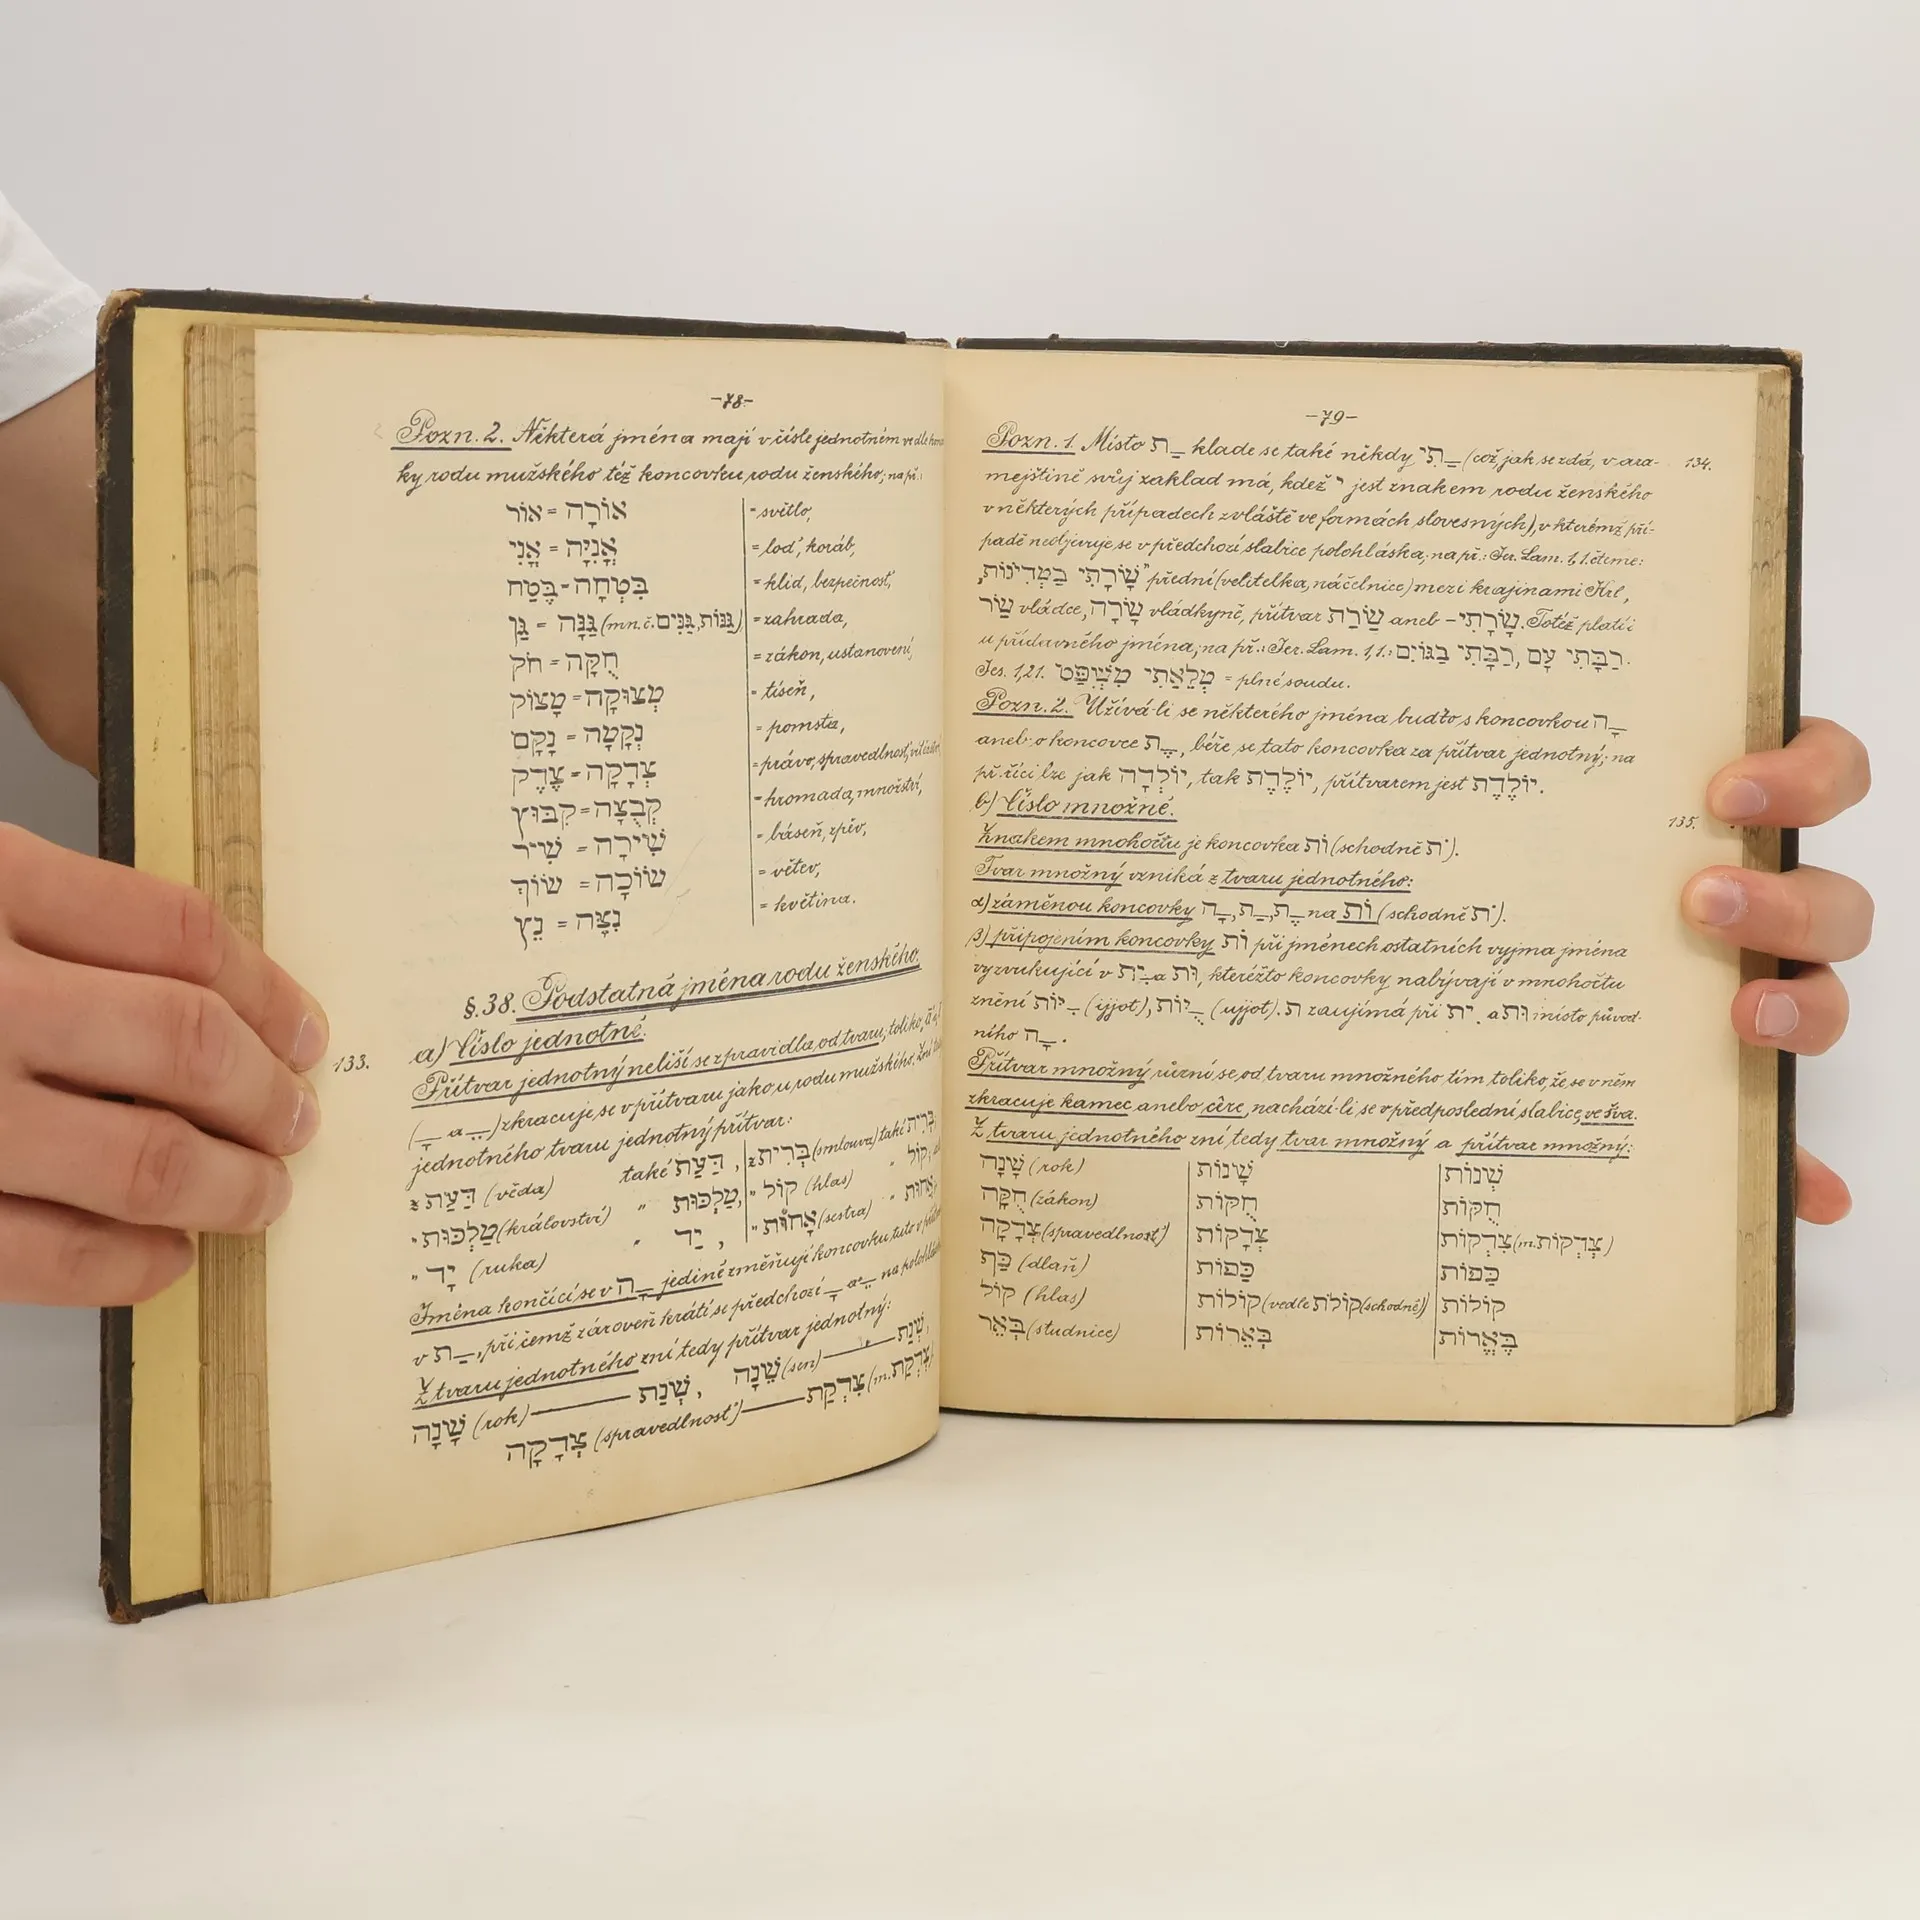 -78-
Pozn. 2. Některá jména mají v čísle jednotném vedle
ky rodu mužského též koncovku rodu ženského; na př.:
אוֹרָה = אוֹר = světlo,
אֳנִיָּה = אֳנִי = loď, koráb,
בִּטְחָה = בֶּטַח = klid, bezpečnosť,
גַּנָּה (mn. č. גַּנִּים, גַּנּוֹת) = גַּן = zahrada,
חֻקָּה = חֹק = zákon, ustanovení,
מְצוּקָה = מָצוֹק = tíseň,
נְקָמָה = נָקָם = pomsta,
צְדָקָה = צֶדֶק = právo, spravedlnosť,
קְבֻצָה = קִבּוּץ = hromada, množství,
שִׁירָה = שִׁיר = báseň, zpěv,
שׂוֹכָה = שׂוֹךְ = větev,
נִצָּה = נֵץ = květina.
§. 38. Podstatná jména rodu ženského.
133.
a) Číslo jednotné.
Přítvar jednotný neliší se zpravidla od tvaru; toliko,
(ָ a ֵ) zkracuje se v přítvaru jako u rodu mužského. Zní
jednotného tvaru jednotný přítvar:
z דַּעַת (věda) také דַּעַת, z בְּרִית (smlouva) také בְּרִית
" מַלְכוּת (království) " מַלְכוּת, " קוֹל (hlas) " קוֹל,
" יָד (ruka) " יַד, " אָחוֹת (sestra) " אֲחוֹת
Jména končící se v ָה jedině změňují koncovku tuto v
v ַת, při čemž zároveň krátí se předchozí ָ a ֵ na
Z tvaru jednotného zní tedy přítvar jednotný:
שָׁנָה (rok) — שְׁנַת, שֵׁנָה (sen) — שְׁנַת,
צְדָקָה (spravedlnosť) — צִדְקַת (m. צְדְקַת)
-79-
Pozn. 1. Místo ַת klade se také někdy ָתִי (což, jak se zdá, v ara-
134.
mejštině svůj zaklad má, kdež י jest znakem rodu ženského
v některých případech zvláště ve formách slovesných), v kterémž pří-
padě neobjevuje se v předchozí slabice polohláska; na př.: Jer. Lam. 1,1. čteme:
„שָׂרָתִי בַּמְּדִינוֹת" přední (velitelka, náčelnice) mezi krajinami
שַׂר vládce, שָׂרָה vládkyně, přítvar שָׂרַת aneb – שָׂרָתִי. Totéž platí i
u přídavného jména; na př.: Jer. Lam. 1,1.: רַבָּתִי עָם, רַבָּתִי בַגּוֹיִם.
Jes. 1,21. מְלֵאֲתִי מִשְׁפָּט = plné soudu.
Pozn. 2. Užívá-li se některého jména buďto s koncovkou ָה
aneb o koncovce ֶת, béře se tato koncovka za přítvar jednotný; na
př. říci lze jak יוֹלְדָה, tak יוֹלֶדֶת, přítvarem jest יוֹלֶדֶת.
b) Číslo množné.
135.
Znakem mnohočtu je koncovka וֹת (schodně ֹת).
Tvar množný vzniká z tvaru jednotného:
α) záměnou koncovky ָה, ַת, ֶת na וֹת (schodně ֹת).
β) připojením koncovky וֹת při jménech ostatních vyjma jména
vyzvukující v ִית a וּת, kteréžto koncovky nabývají v mnohočtu
znění ִיּוֹת (ijjot), ֻיּוֹת (ujjot). ת zaujímá při ִית a וּת místo původ-
ního ָה.
Přítvar množný různí se od tvaru množného tím toliko, že se v něm
zkracuje kamec anebo cére, nachází-li se v předposlední slabice, ve šva.
Z tvaru jednotného zní tedy tvar množný a přítvar množný:
שָׁנָה (rok) שָׁנוֹת שְׁנוֹת
חֻקָּה (zákon) חֻקּוֹת חֻקּוֹת
צְדָקָה (spravedlnosť) צְדָקוֹת צִדְקוֹת (m. צְדְקוֹת)
כַּף (dlaň) כַּפּוֹת כַּפּוֹת
קוֹל (hlas) קוֹלוֹת (vedle קוֹלֹת (schodně)) קוֹלוֹת
בְּאֵר (studnice) בְּאֵרוֹת בֶּאֱרוֹת